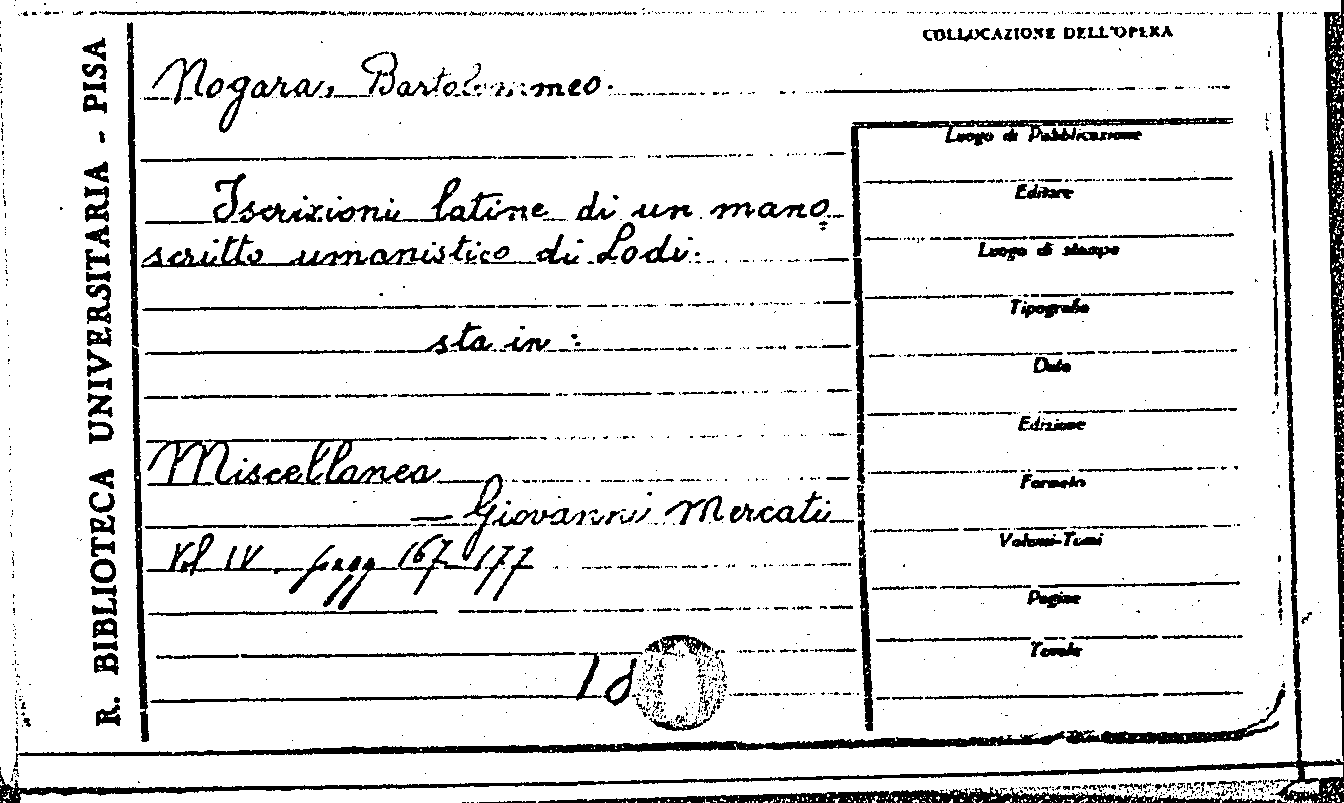 R. BIBLIOTECA UNIVERSITARIA - PISA
COLLOCAZIONE DELL'OPERA
Nogara, Bartolommeo.
Iscrizioni latine di un mano
scritto umanistico di Lodi.
sta in:
Miscellanea
— Giovanni Mercati
Vol IV. pagg 167-177
Luogo di Pubblicazione
Editore
Luogo di stampa
Tipografia
Data
Edizione
Formato
Volumi-Tomi
Pagine
Tavole